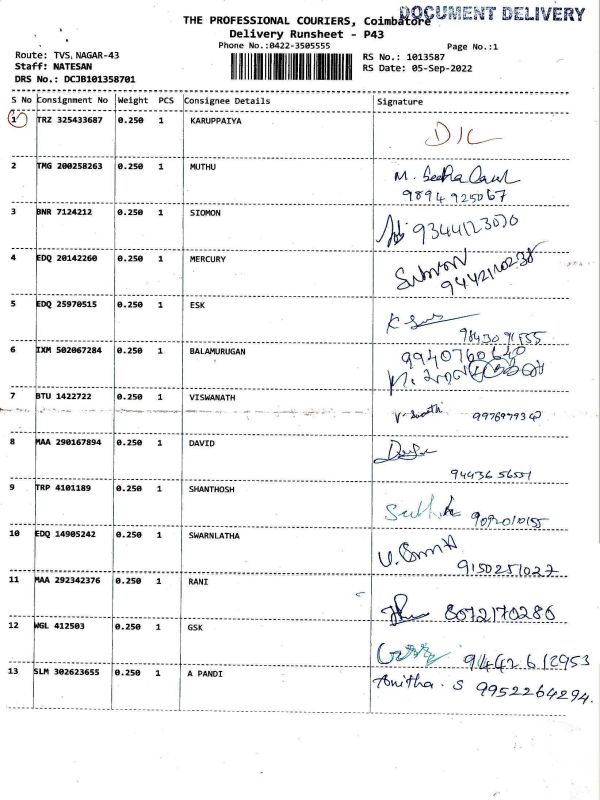 DOCUMENT DELIVERY
THE PROFESSIONAL COURIERS, Coimbatore
Delivery Runsheet - P43
Phone No.:0422-3505555
Page No.:1
Route: TVS, NAGAR-43
RS No.: 1013587
Staff: NATESAN
RS Date: 05-Sep-2022
DRS No.: DCJB101358701
S No Consignment No Weight PCS Consignee Details Signature
1 TRZ 325433687 0.250 1 KARUPPAIYA
D/L
2 TMG 200258263 0.250 1 MUTHU
M.
9894925067
3 BNR 7124212 0.250 1 SIOMON
9344123070
4 EDQ 20142260 0.250 1 MERCURY
5 EDQ 25970515 0.250 1 ESK
K
6 IXM 502067284 0.250 1 BALAMURUGAN
9940760640
7 BTU 1422722 0.250 1 VISWANATH
8 MAA 290167894 0.250 1 DAVID
9443656551
9 TRP 4101189 0.250 1 SHANTHOSH
10 EDQ 14905242 0.250 1 SWARNLATHA
9150251027
11 MAA 292342376 0.250 1 RANI
8072170286
12 WGL 412503 0.250 1 GSK
9442612953
13 SLM 302623655 0.250 1 A PANDI
Anitha. S 9952264294.